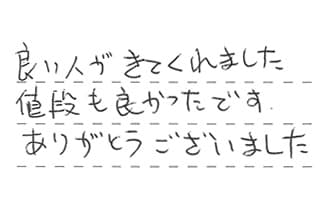 良い人がきてくれました
値段も良かったです.
ありがとうございました